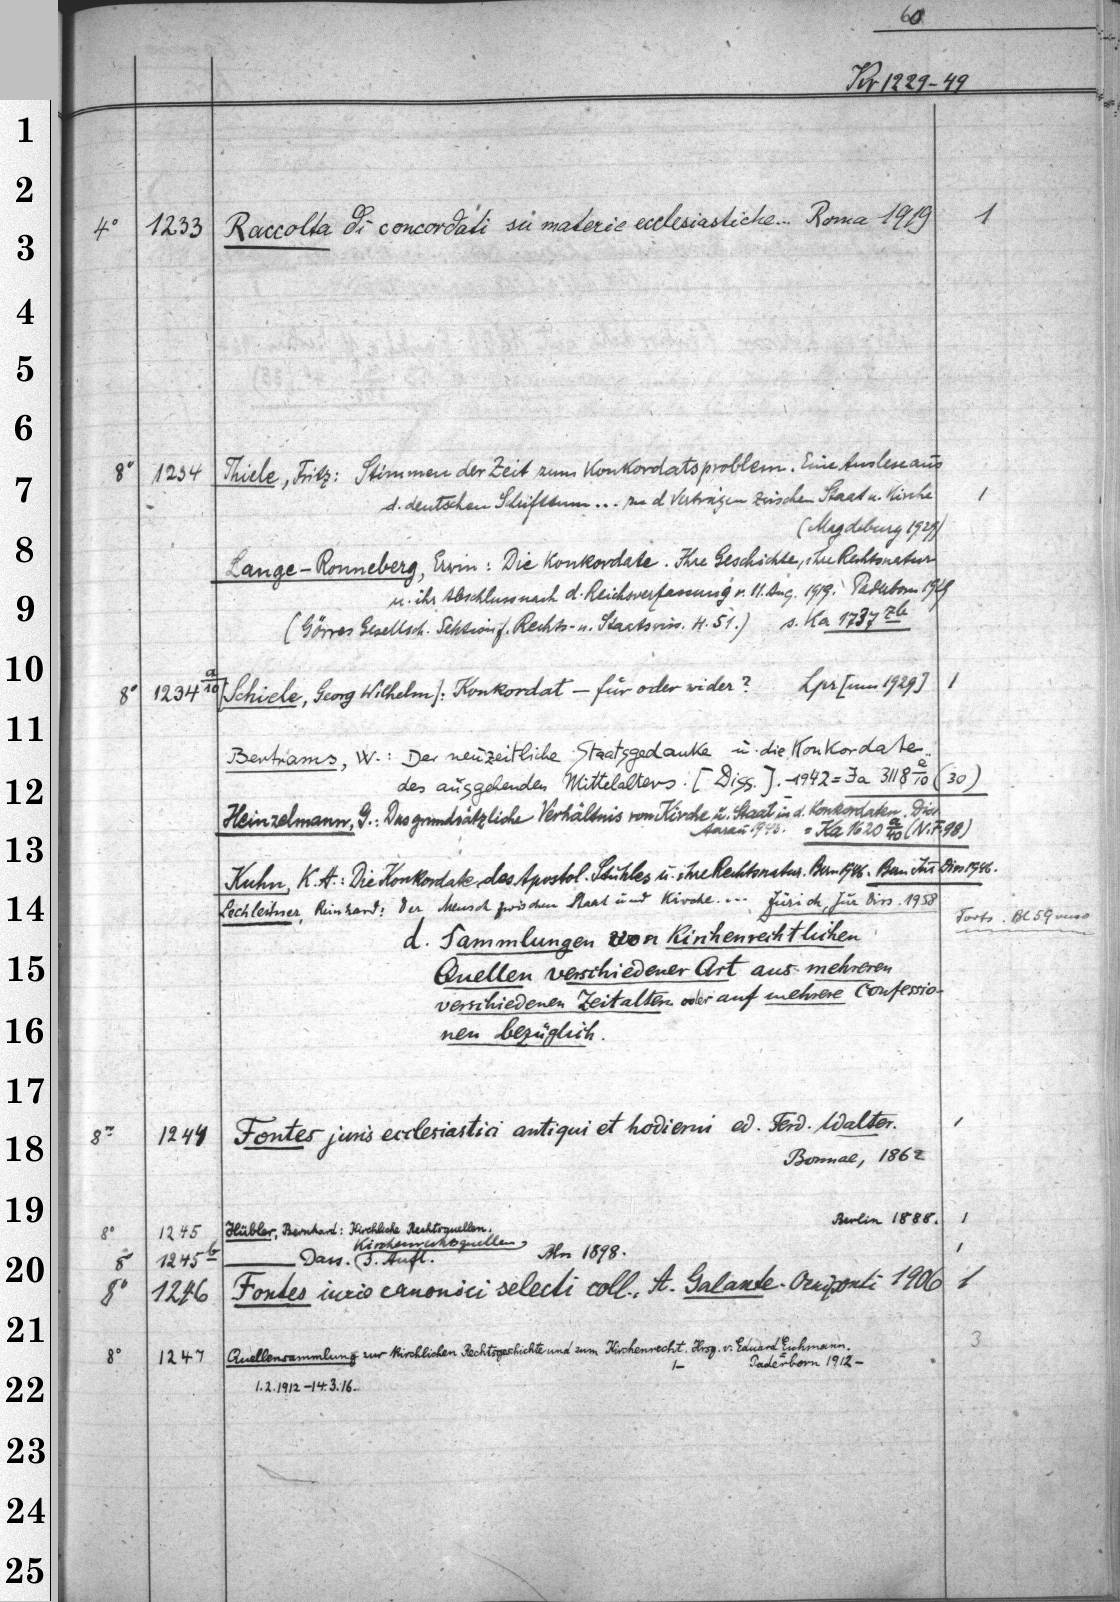 60
Kr 1229-49
1
2
4° 1233 Raccolta di concordati su materie ecclesiastiche... Roma 1919 1
3
4
5
6
8° 1234 Thiele, Fritz: Stimmen der Zeit zum Konkordatsproblem. Eine Auslese aus
7
d. deutschen Schrifttum... zu d Verträgen zwischen Staat u. Kirche 1
(Magdeburg 1929)
8
Lange-Ronneberg, Erwin: Die Konkordate. Ihre Geschichte, ihre Rechtsnatur
9
u. ihr Abschluss nach d. Reichsverfassung v. 11. Aug. 1919. Paderborn 1929
(Görres Gesellsch. Sektion f. Rechts- u. Staatswiss. H. 51.) s. Ka 1737 zb
10
8° 1234 a/10 [Schiele, Georg Wilhelm]: Konkordat - für oder wider? Lpz [um 1929] 1
11
Bertrams, W.: Der neuzeitliche Staatsgedanke u. die Konkordate
12
des ausgehenden Mittelalters. [Diss.]. - 1942 = Ja 3118 a/10 (30)
Heinzelmann, G.: Das grundsätzliche Verhältnis von Kirche u. Staat in d. Konkordaten. Diss
Aarau 1943. = Ka 1620 a/40 (N.F. 98)
13
Kuhn, K. A.: Die Konkordate des Apostol. Stuhles u. ihre Rechtsnatur. Bern 1946. Bern Jur Diss 1946.
14
Lechleitner, Reinhard: Der Mensch zwischen Staat und Kirche.... Zürich, Jur Diss. 1958
Forts. Bl 59 verso
d. Sammlungen von Kirchenrechtlichen
15
Quellen verschiedener Art aus mehreren
verschiedenen Zeitaltern oder auf mehrere Confessio-
16
nen bezüglich.
17
8° 1244 Fontes juris ecclesiastici antiqui et hodierni ed. Ferd. Walter. 1
18
Bonnae, 1862
19
8° 1245 Hübler, Bernhard: Kirchliche Rechtsquellen. Berlin 1888. 1
Kirchenrechtsquellen
8° 1245 b Dass. 3. Aufl. Bln 1898. 1
20
8° 1246 Fontes iuris canonici selecti coll. A. Galante. Oeniponti 1906 1
21
8° 1247 Quellensammlung zur kirchlichen Rechtsgeschichte und zum Kirchenrecht. Hrsg. v. Eduard Eichmann. 3
1- Paderborn 1912-
22
1. 2. 1912 - 14. 3. 16.
23
24
25